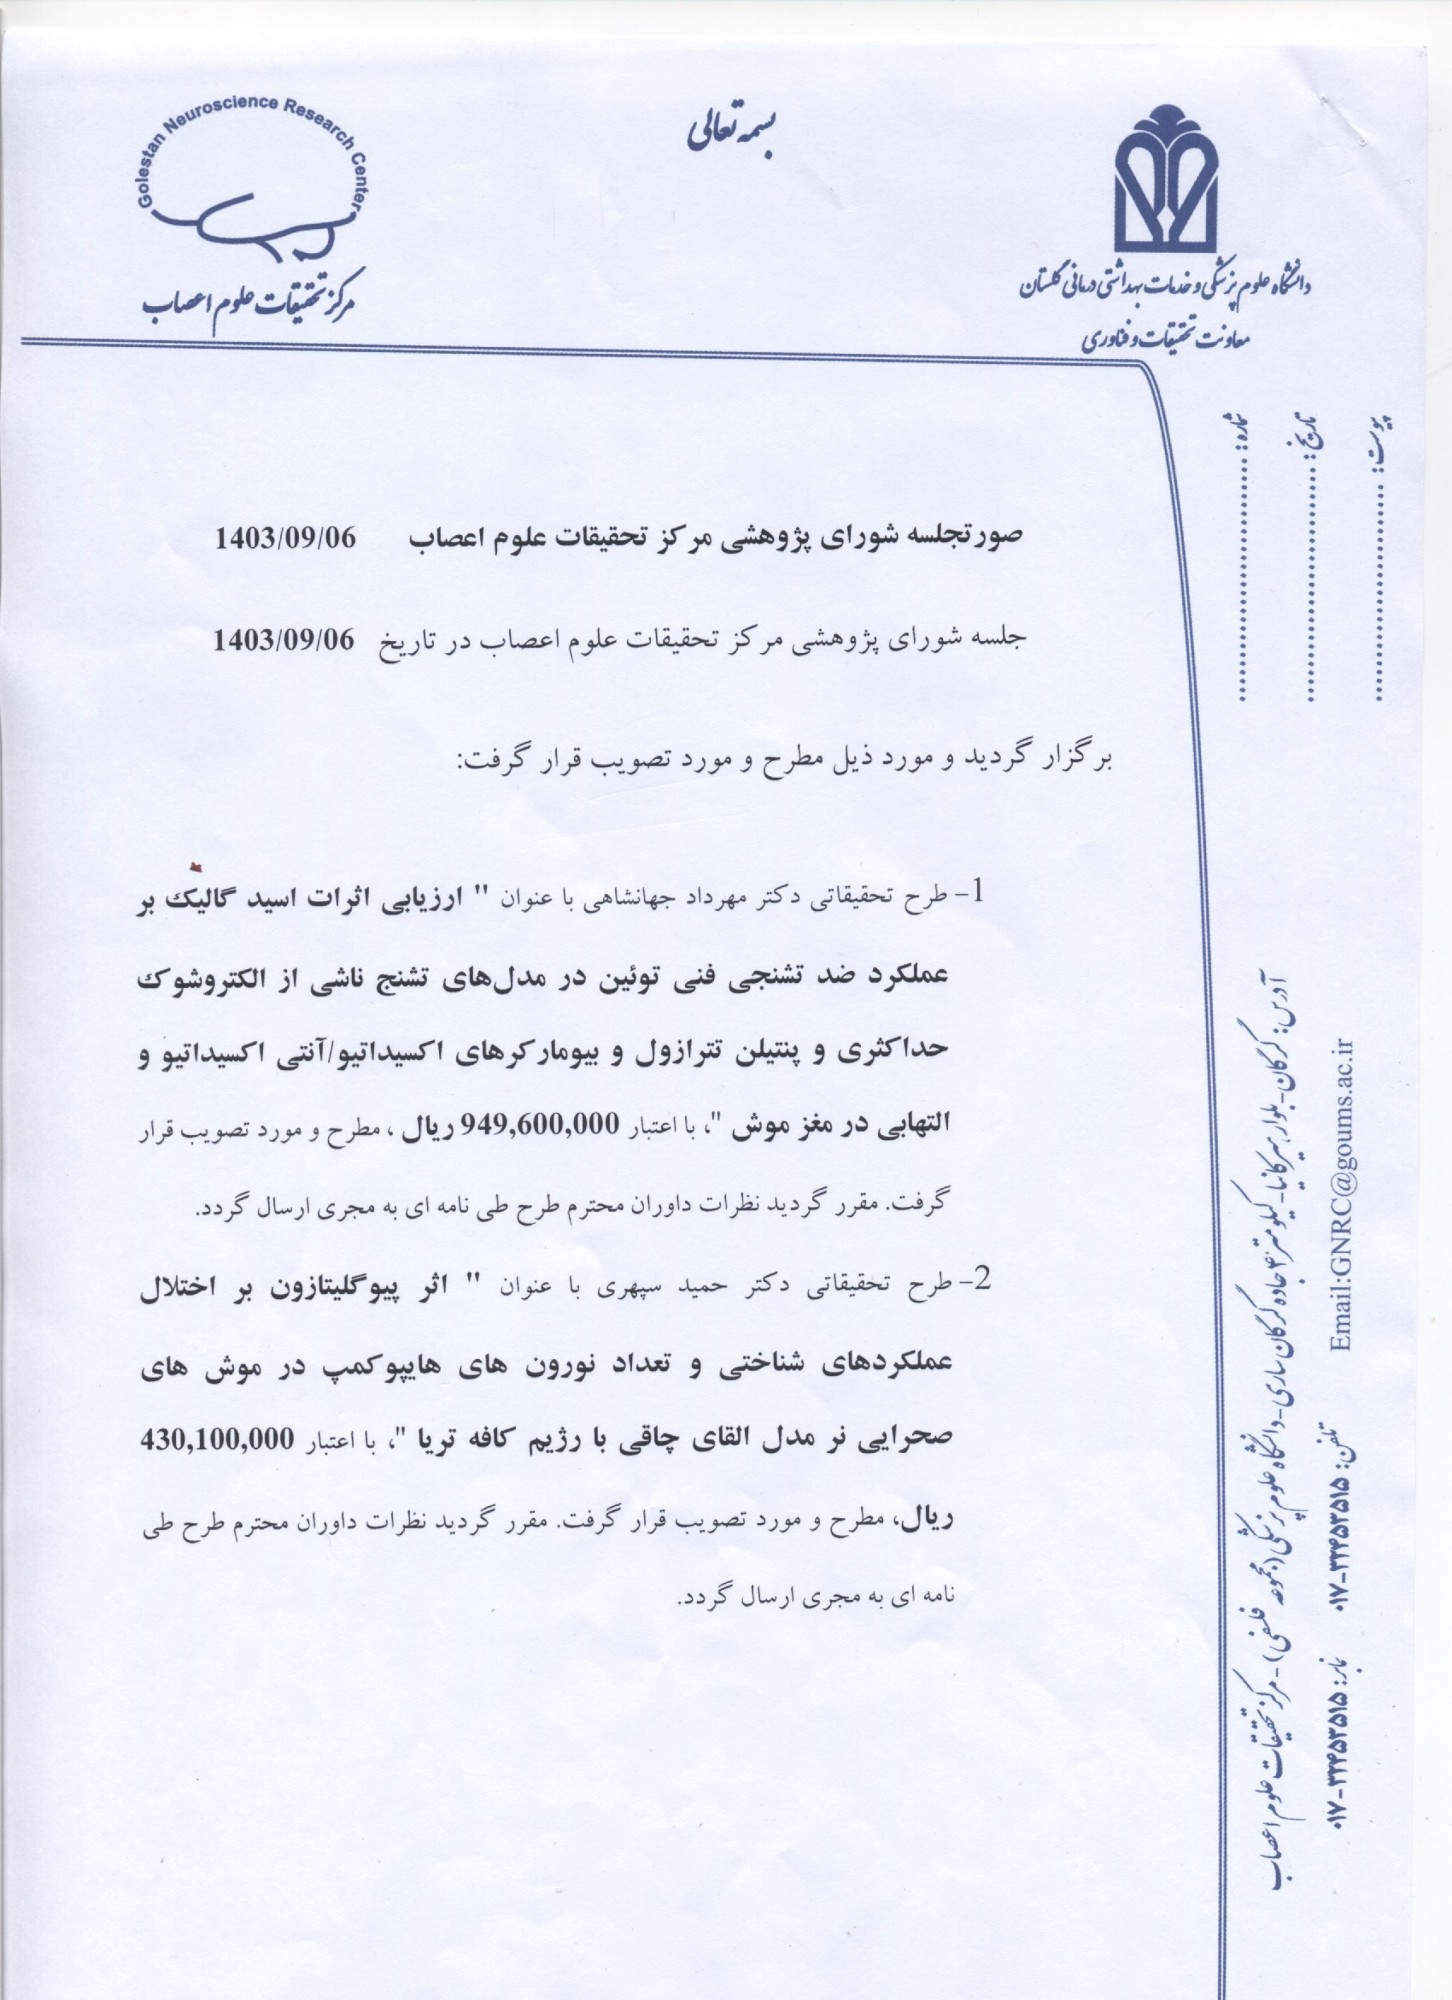 بسمه تعالی
Golestan Neuroscience Research Center
مرکز تحقیقات علوم اعصاب
دانشگاه علوم پزشکی و خدمات بهداشتی درمانی گلستان
معاونت تحقیقات و فناوری
شماره: ..............................
تاریخ: ..............................
پیوست: ..............................
صورتجلسه شورای پژوهشی مرکز تحقیقات علوم اعصاب 1403/09/06
جلسه شورای پژوهشی مرکز تحقیقات علوم اعصاب در تاریخ 1403/09/06
برگزار گردید و مورد ذیل مطرح و مورد تصویب قرار گرفت:
1- طرح تحقیقاتی دکتر مهرداد جهانشاهی با عنوان " ارزیابی اثرات اسید گالیک بر
عملکرد ضد تشنجی فنی توئین در مدل‌های تشنج ناشی از الکتروشوک
حداکثری و پنتیلن تترازول و بیومارکرهای اکسیداتیو/آنتی اکسیداتیو و
التهابی در مغز موش "، با اعتبار 949,600,000 ریال ، مطرح و مورد تصویب قرار
گرفت. مقرر گردید نظرات داوران محترم طرح طی نامه ای به مجری ارسال گردد.
2- طرح تحقیقاتی دکتر حمید سپهری با عنوان " اثر پیوگلیتازون بر اختلال
عملکردهای شناختی و تعداد نورون های هایپوکمپ در موش های
صحرایی نر مدل القای چاقی با رژیم کافه تریا "، با اعتبار 430,100,000
ریال، مطرح و مورد تصویب قرار گرفت. مقرر گردید نظرات داوران محترم طرح طی
نامه ای به مجری ارسال گردد.
آدرس: گرگان-بلوار هیرکانیا-کیلومتر ۳ جاده گرگان ساری-دانشگاه علوم پزشکی (مجموعه فلسفی)-مرکز تحقیقات علوم اعصاب
Email:GNRC@goums.ac.ir تلفن: ۰۱۷-۳۲۴۵۳۵۱۵ نمابر: ۰۱۷-۳۲۴۵۳۵۱۵